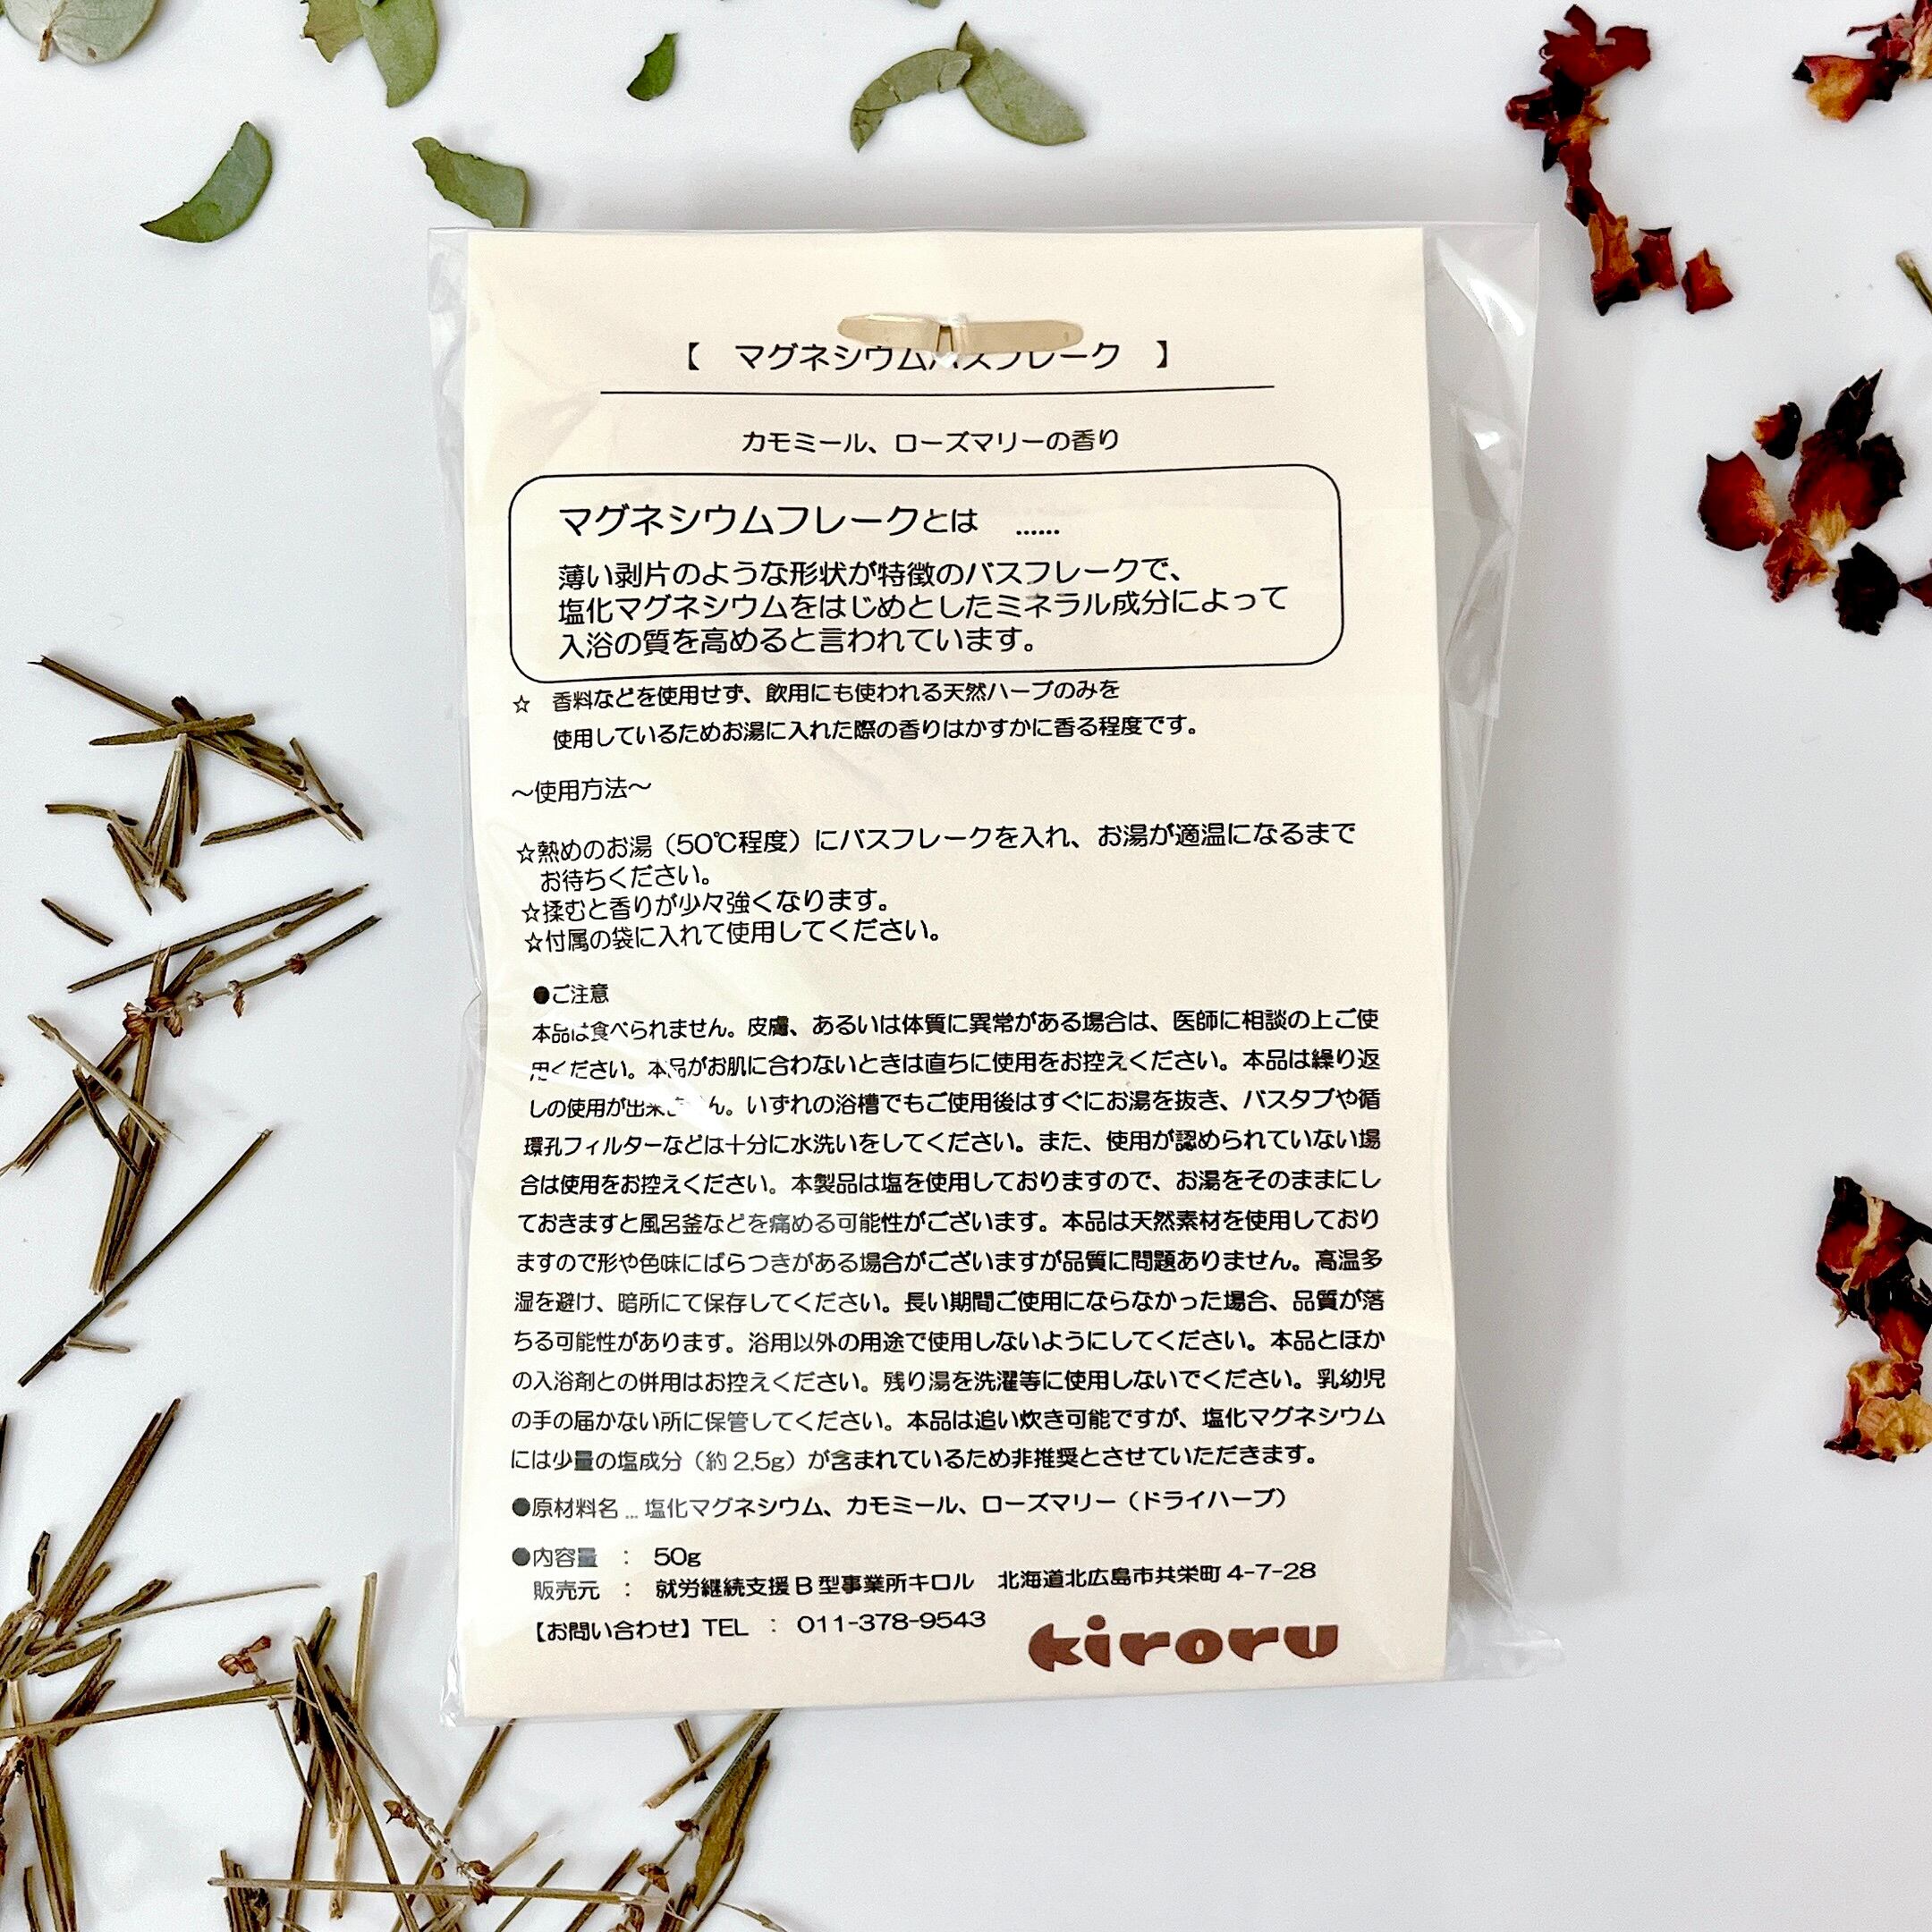 【 マグネシウムバスフレーク 】
カモミール、ローズマリーの香り
マグネシウムフレークとは ……
薄い剥片のような形状が特徴のバスフレークで、
塩化マグネシウムをはじめとしたミネラル成分によって
入浴の質を高めると言われています。
☆ 香料などを使用せず、飲用にも使われる天然ハーブのみを
使用しているためお湯に入れた際の香りはかすかに香る程度です。
～使用方法～
☆熱めのお湯（50℃程度）にバスフレークを入れ、お湯が適温になるまで
お待ちください。
☆揉むと香りが少々強くなります。
☆付属の袋に入れて使用してください。
●ご注意
本品は食べられません。皮膚、あるいは体質に異常がある場合は、医師に相談の上ご使
用ください。本品がお肌に合わないときは直ちに使用をお控えください。本品は繰り返
しの使用が出来ません。いずれの浴槽でもご使用後はすぐにお湯を抜き、バスタブや循
環孔フィルターなどは十分に水洗いをしてください。また、使用が認められていない場
合は使用をお控えください。本製品は塩を使用しておりますので、お湯をそのままにし
ておきますと風呂釜などを痛める可能性がございます。本品は天然素材を使用しており
ますので形や色味にばらつきがある場合がございますが品質に問題ありません。高温多
湿を避け、暗所にて保存してください。長い期間ご使用にならなかった場合、品質が落
ちる可能性があります。浴用以外の用途で使用しないようにしてください。本品とほか
の入浴剤との併用はお控えください。残り湯を洗濯等に使用しないでください。乳幼児
の手の届かない所に保管してください。本品は追い炊き可能ですが、塩化マグネシウム
には少量の塩成分（約 2.5g）が含まれているため非推奨とさせていただきます。
●原材料名 … 塩化マグネシウム、カモミール、ローズマリー（ドライハーブ）
●内容量 ： 50g
販売元 ： 就労継続支援 B 型事業所キロル 北海道北広島市共栄町 4-7-28
【お問い合わせ】TEL ： 011-378-9543
kiroru